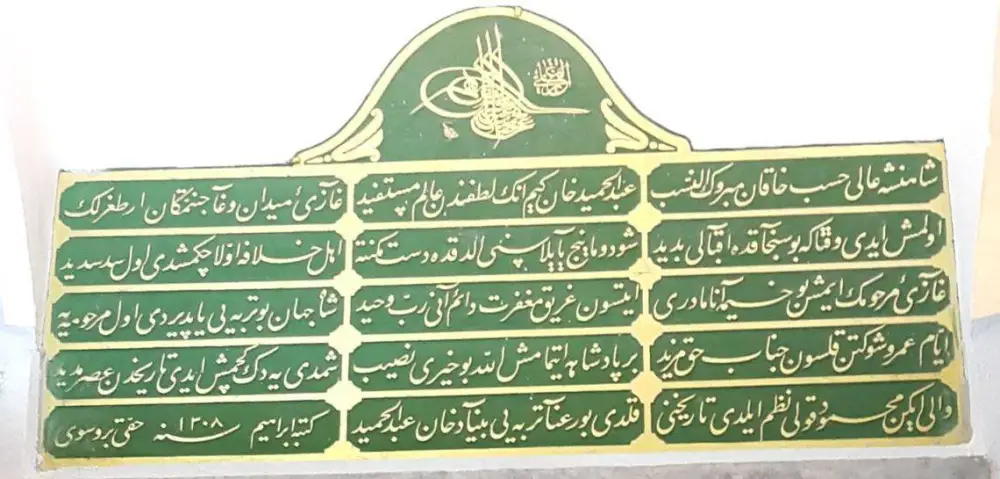 شاهنشه عالی حسب خاقان مبروك النسب
عبدالحمید خان كیم انك لطفندن عالم مستفید
غازیٔ میدان وغا جنتمكان ارطغرلك
اولمش ایدی وقتا كه بو سنجاقده اقبالی بدید
شو دومانیج یایلاسنی الدقده دست مكنته
اهل خلافه اولا چكمشدی اول سد سدید
غازیٔ مرحومك ایمش بو خیمه آنا مادری
ایتسون غریق مغفرت دائم آنی رب وحید
شاه جهان بو تربه یی یاپدیردی اول مرحومه یه
ایام عمر و شوكتن قلسون جناب حق مزید
بر پادشاهه ایتمامش الله بو خیری نصیب
شمدی یه دك كچمش ایدی تاریخدن عصر مدید
والی ایكن محمود قولی نظم ایلدی تاریخنی
قلدی بو رعنا تربه یی بنیاد خان عبدالحمید
كتبه ابراهیم سنه ١٣٠٨ حقی بروسوی